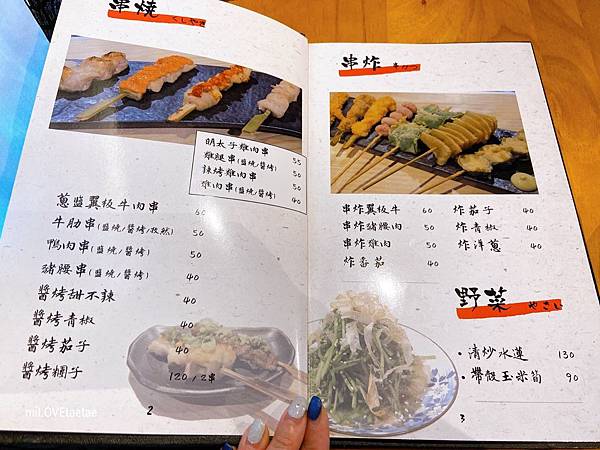 串燒 くしやき
明太子雞肉串 55
雞腿串(鹽燒/醬烤) 50
辣烤雞肉串 50
雞肉串(鹽燒/醬烤) 40
蔥鹽翼板牛肉串 60
牛肋串(鹽燒/醬烤/孜然) 50
鴨肉串(鹽燒/醬烤) 50
豬腰串(鹽燒/醬烤) 40
醬烤甜不辣 40
醬烤青椒 40
醬烤茄子 40
醬烤糰子 120/2串
2
miLOVEtaetae
串炸
串炸翼板牛 60
串炸豬腰肉 50
串炸雞肉 50
炸番茄 40
炸茄子 40
炸青椒 40
炸洋蔥 40
野菜 やさい
・清炒水蓮 130
・帶殼玉米筍 90
3